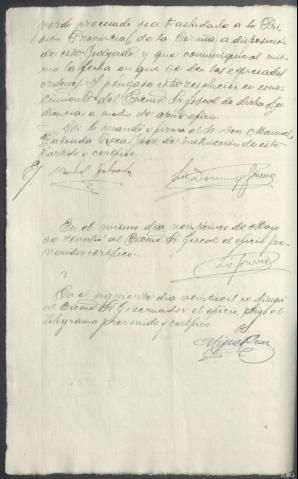 procesado sea trasladado a la Pri-
sión Provincial de la Coruña a disposición
de este Juzgado y que comunique al mis-
mo la fecha en que se den las expresadas
ordenes. Y póngase esta resolución en cono-
cimiento del Excmo Sr Fiscal de dicha
Audiencia a medio de atento oficio.
Así lo mandó y firma el Sr Don Manuel
Taboada Roca Juez de instrucción de este
Partido y certifico.
E/ Manuel Taboada
En el mismo día veinticinco de Mayo
se remitió al Excmo Sr Fiscal el oficio pre-
venido certifico.
En el siguiente día veintiseis se dirigió
al Excmo Sr Gobernador el oficio, y el
telegrama prevenido y certifico.